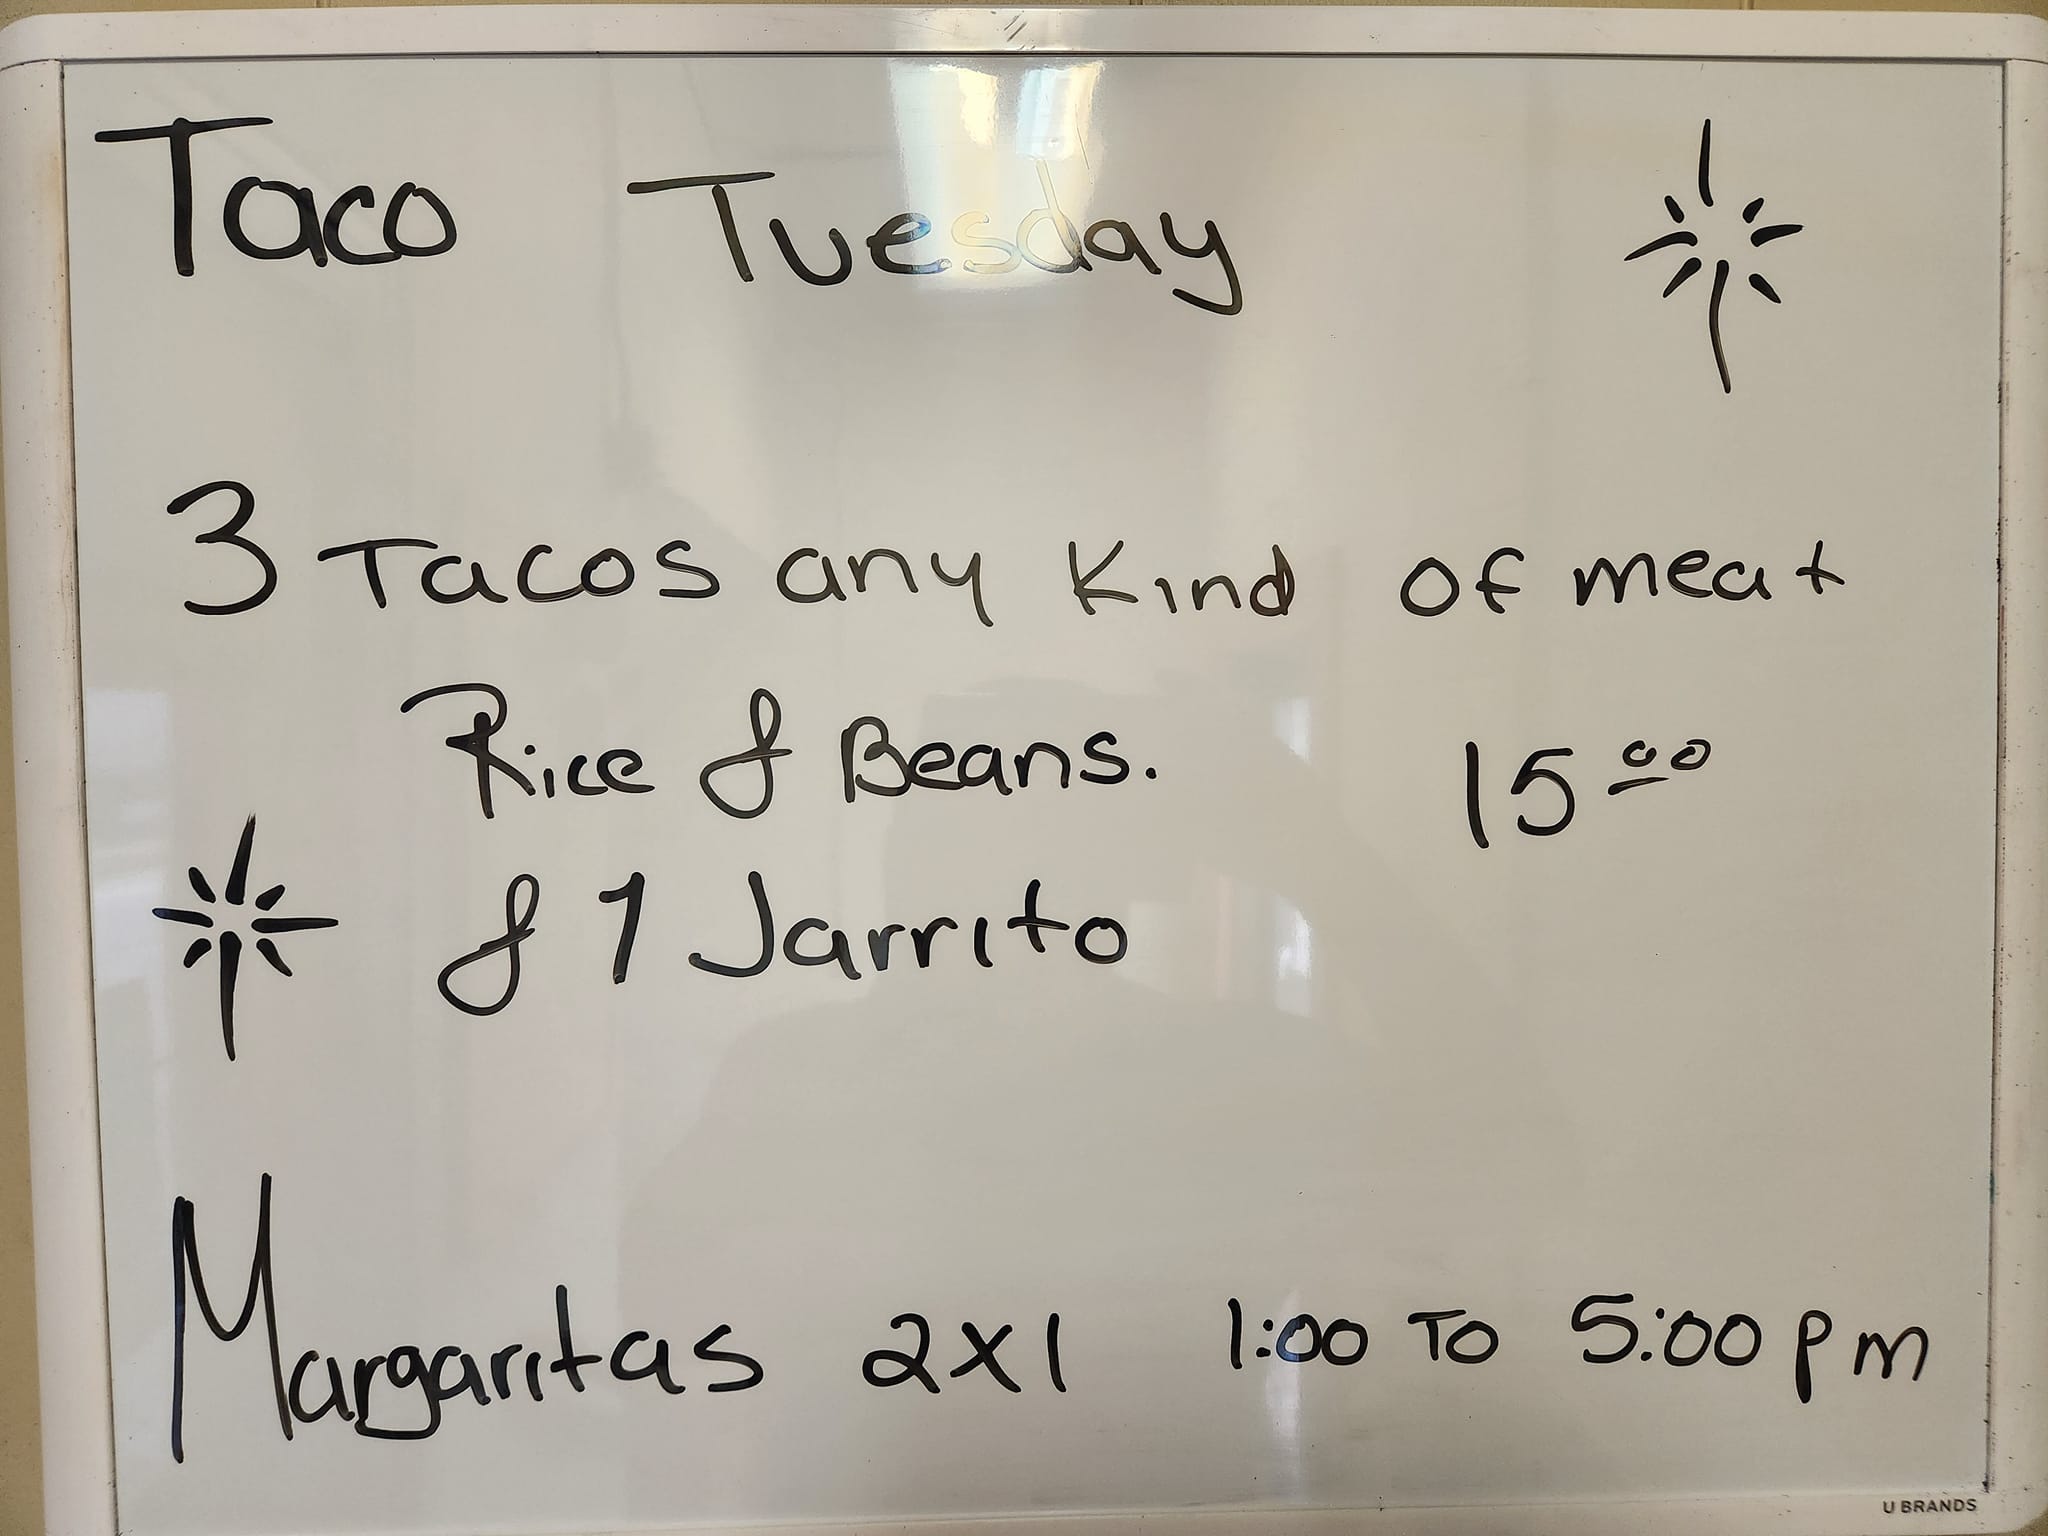 Taco Tuesday
3 Tacos any Kind of meat
Rice & Beans. 15.00
& 1 Jarrito
Margaritas 2x1 1:00 To 5:00 pm
U BRANDS